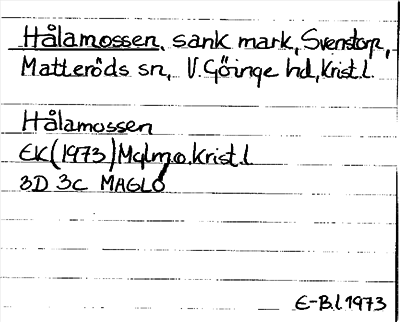 Hålamossen, sank mark, Svenstorp,
Matteröds sn, V. Göinge hd, Krist.l.
Hålamossen
EK (1973) Malmö. Krist.l
3D 3C MAGLÖ
E-B.l. 1973